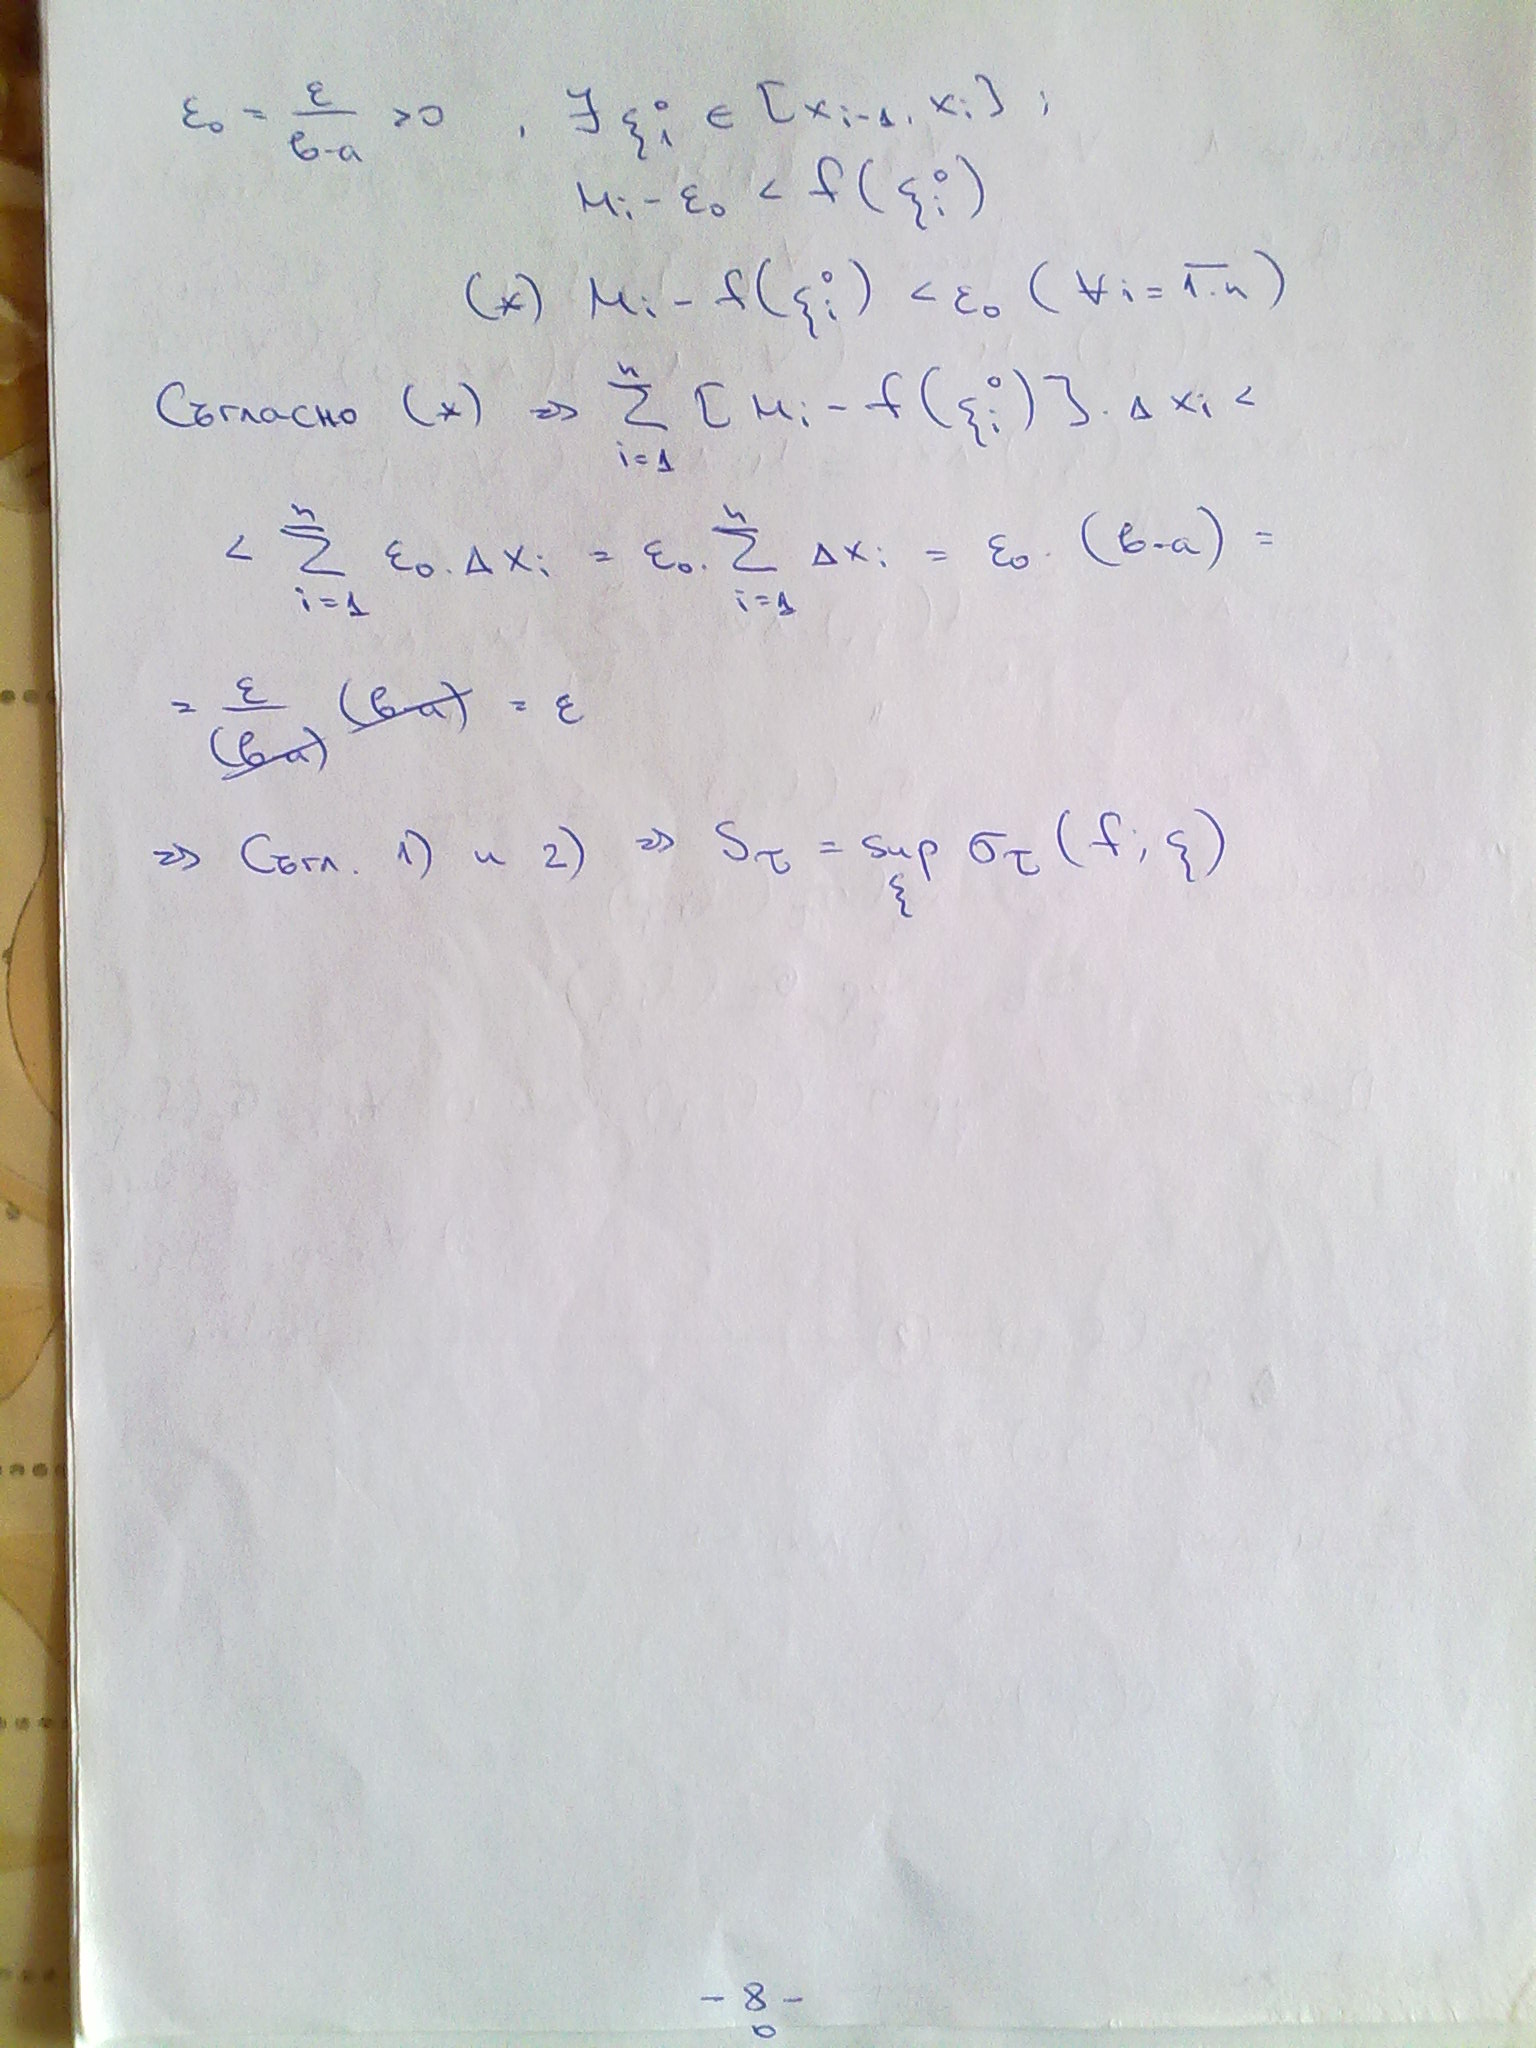 ε₀ = ε/(b-a) > 0 , ∃ ξᵢ° ∈ [xᵢ₋₁, xᵢ] ;
Mᵢ - ε₀ < f(ξᵢ°)
(*) Mᵢ - f(ξᵢ°) < ε₀ (∀ i = 1.n)
Съгласно (*) ⇒ ∑ⁿᵢ₌₁ [Mᵢ - f(ξᵢ°)] . Δxᵢ <
< ∑ⁿᵢ₌₁ ε₀ . Δxᵢ = ε₀ . ∑ⁿᵢ₌₁ Δxᵢ = ε₀ . (b-a) =
= ε/(b-a) (b-a) = ε
⇒ Съгл. 1) и 2) ⇒ S_τ = sup_ξ σ_τ (f; ξ)
- 8 -